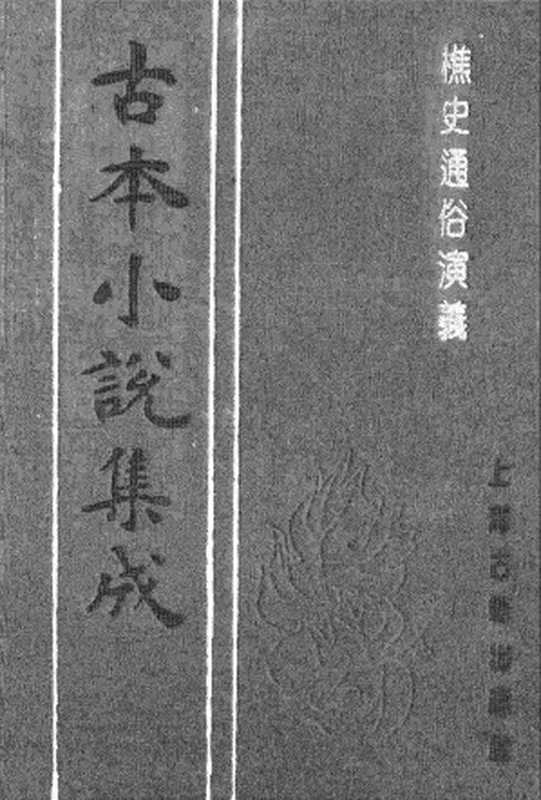 樵史通俗演義
古本小說集成
上海古籍出版社